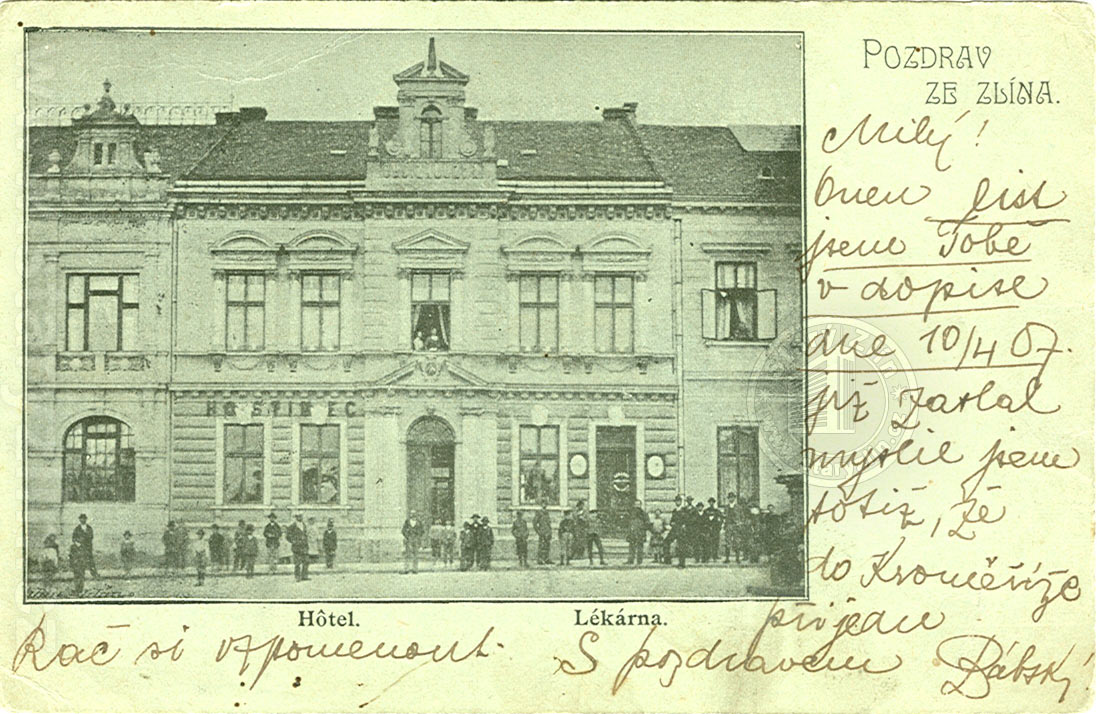 POZDRAV
ZE ZLÍNA.
Milý!
Onen list
jsem Tobě
v dopise
dne 10/4 07.
již zaslal
myslil jsem
totiž, že
do Kroměříže
přijedu
HOSTINEC
Hôtel.
Lékárna.
Rač si vzpomenout.
S pozdravem
Bábský!